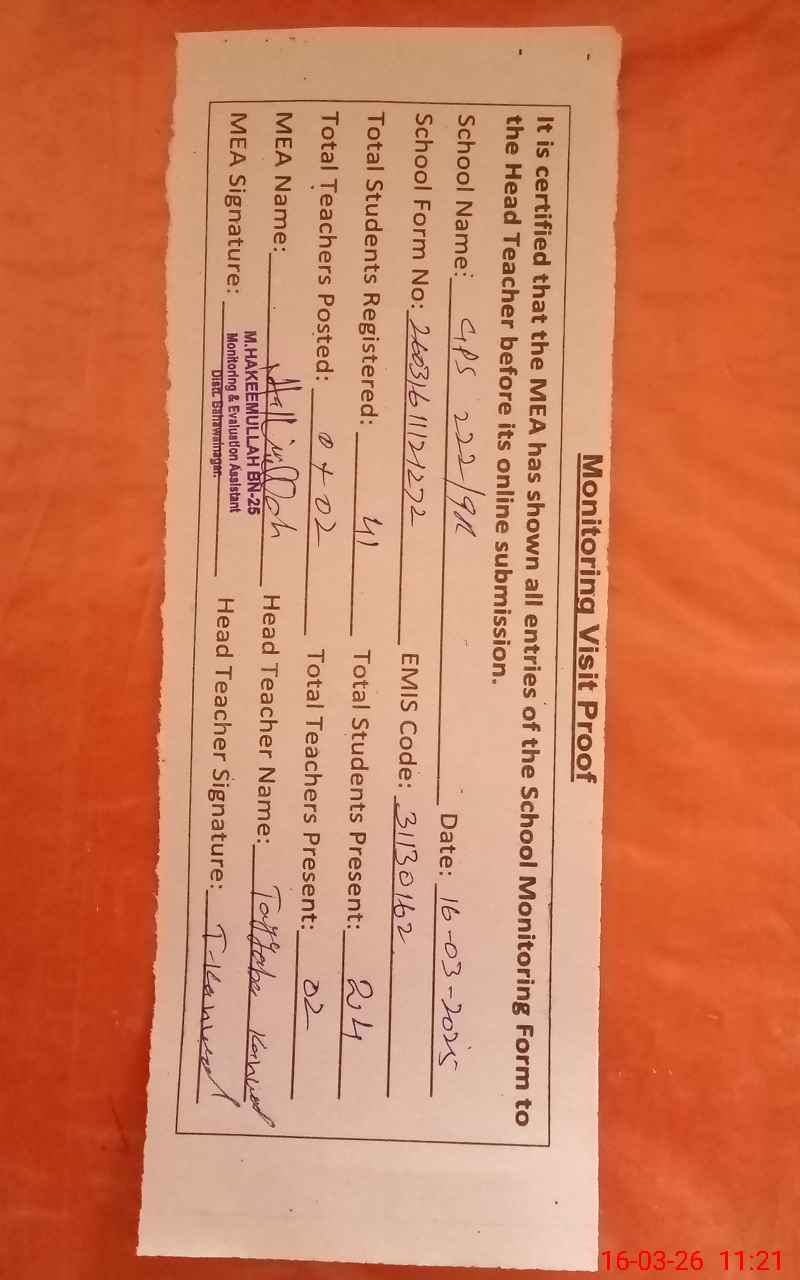 Monitoring Visit Proof
It is certified that the MEA has shown all entries of the School Monitoring Form to
the Head Teacher before its online submission.
School Name: GPS 222/9R Date: 16-03-2025
School Form No: 26031611121272 EMIS Code: 31130162
Total Students Registered: 41 Total Students Present: 24
Total Teachers Posted: 0+02 Total Teachers Present: 02
MEA Name: Head Teacher Name: Tayyaba Kanwal
M.HAKEEMULLAH BN-25
Monitoring & Evaluation Assistant
Distt. Bahawalnagar.
MEA Signature: Head Teacher Signature: T-Kanwal
16-03-26 11:21